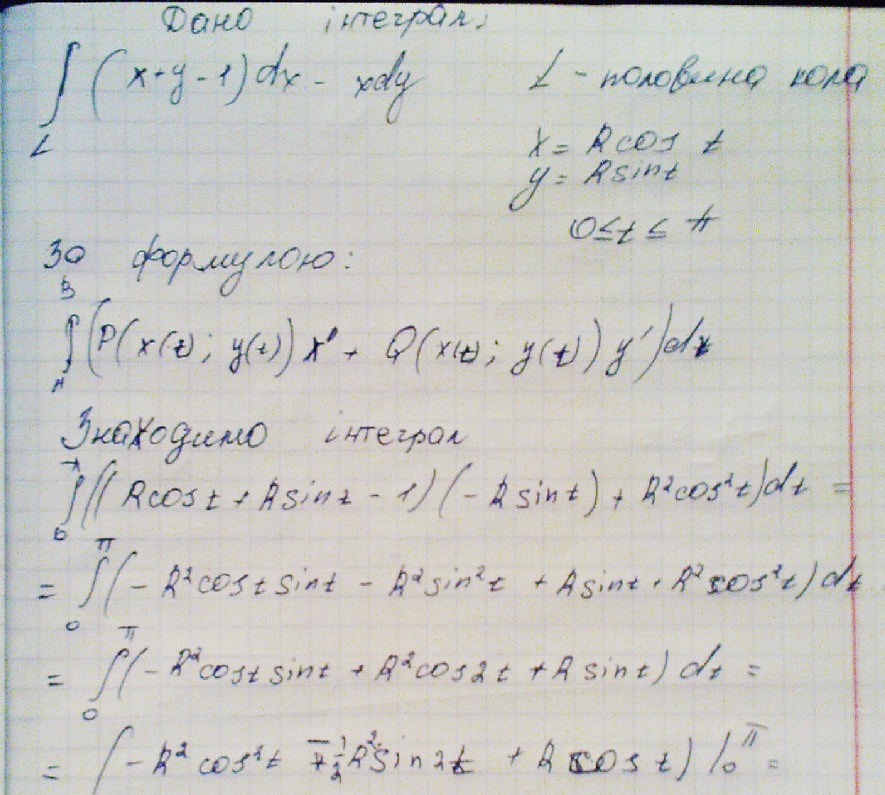 Дано інтеграл:
∫_L (x+y-1)dx - xdy
L - половина кола
x = R cos t
y = R sin t
0≤t≤π
За формулою:
∫_A^B (P(x(t); y(t)) x' + Q(x(t); y(t)) y')dt
Знаходимо інтеграл
∫_0^π ((R cos t + R sin t - 1)(-R sin t) + R² cos² t)dt =
= ∫_0^π (-R² cos t sin t - R² sin² t + R sin t + R² cos² t)dt
= ∫_0^π (-R² cos t sin t + R² cos 2t + R sin t) dt =
= (-R² cos² t ∓ 1/2 R² sin 2t + R cos t) |_0^π =